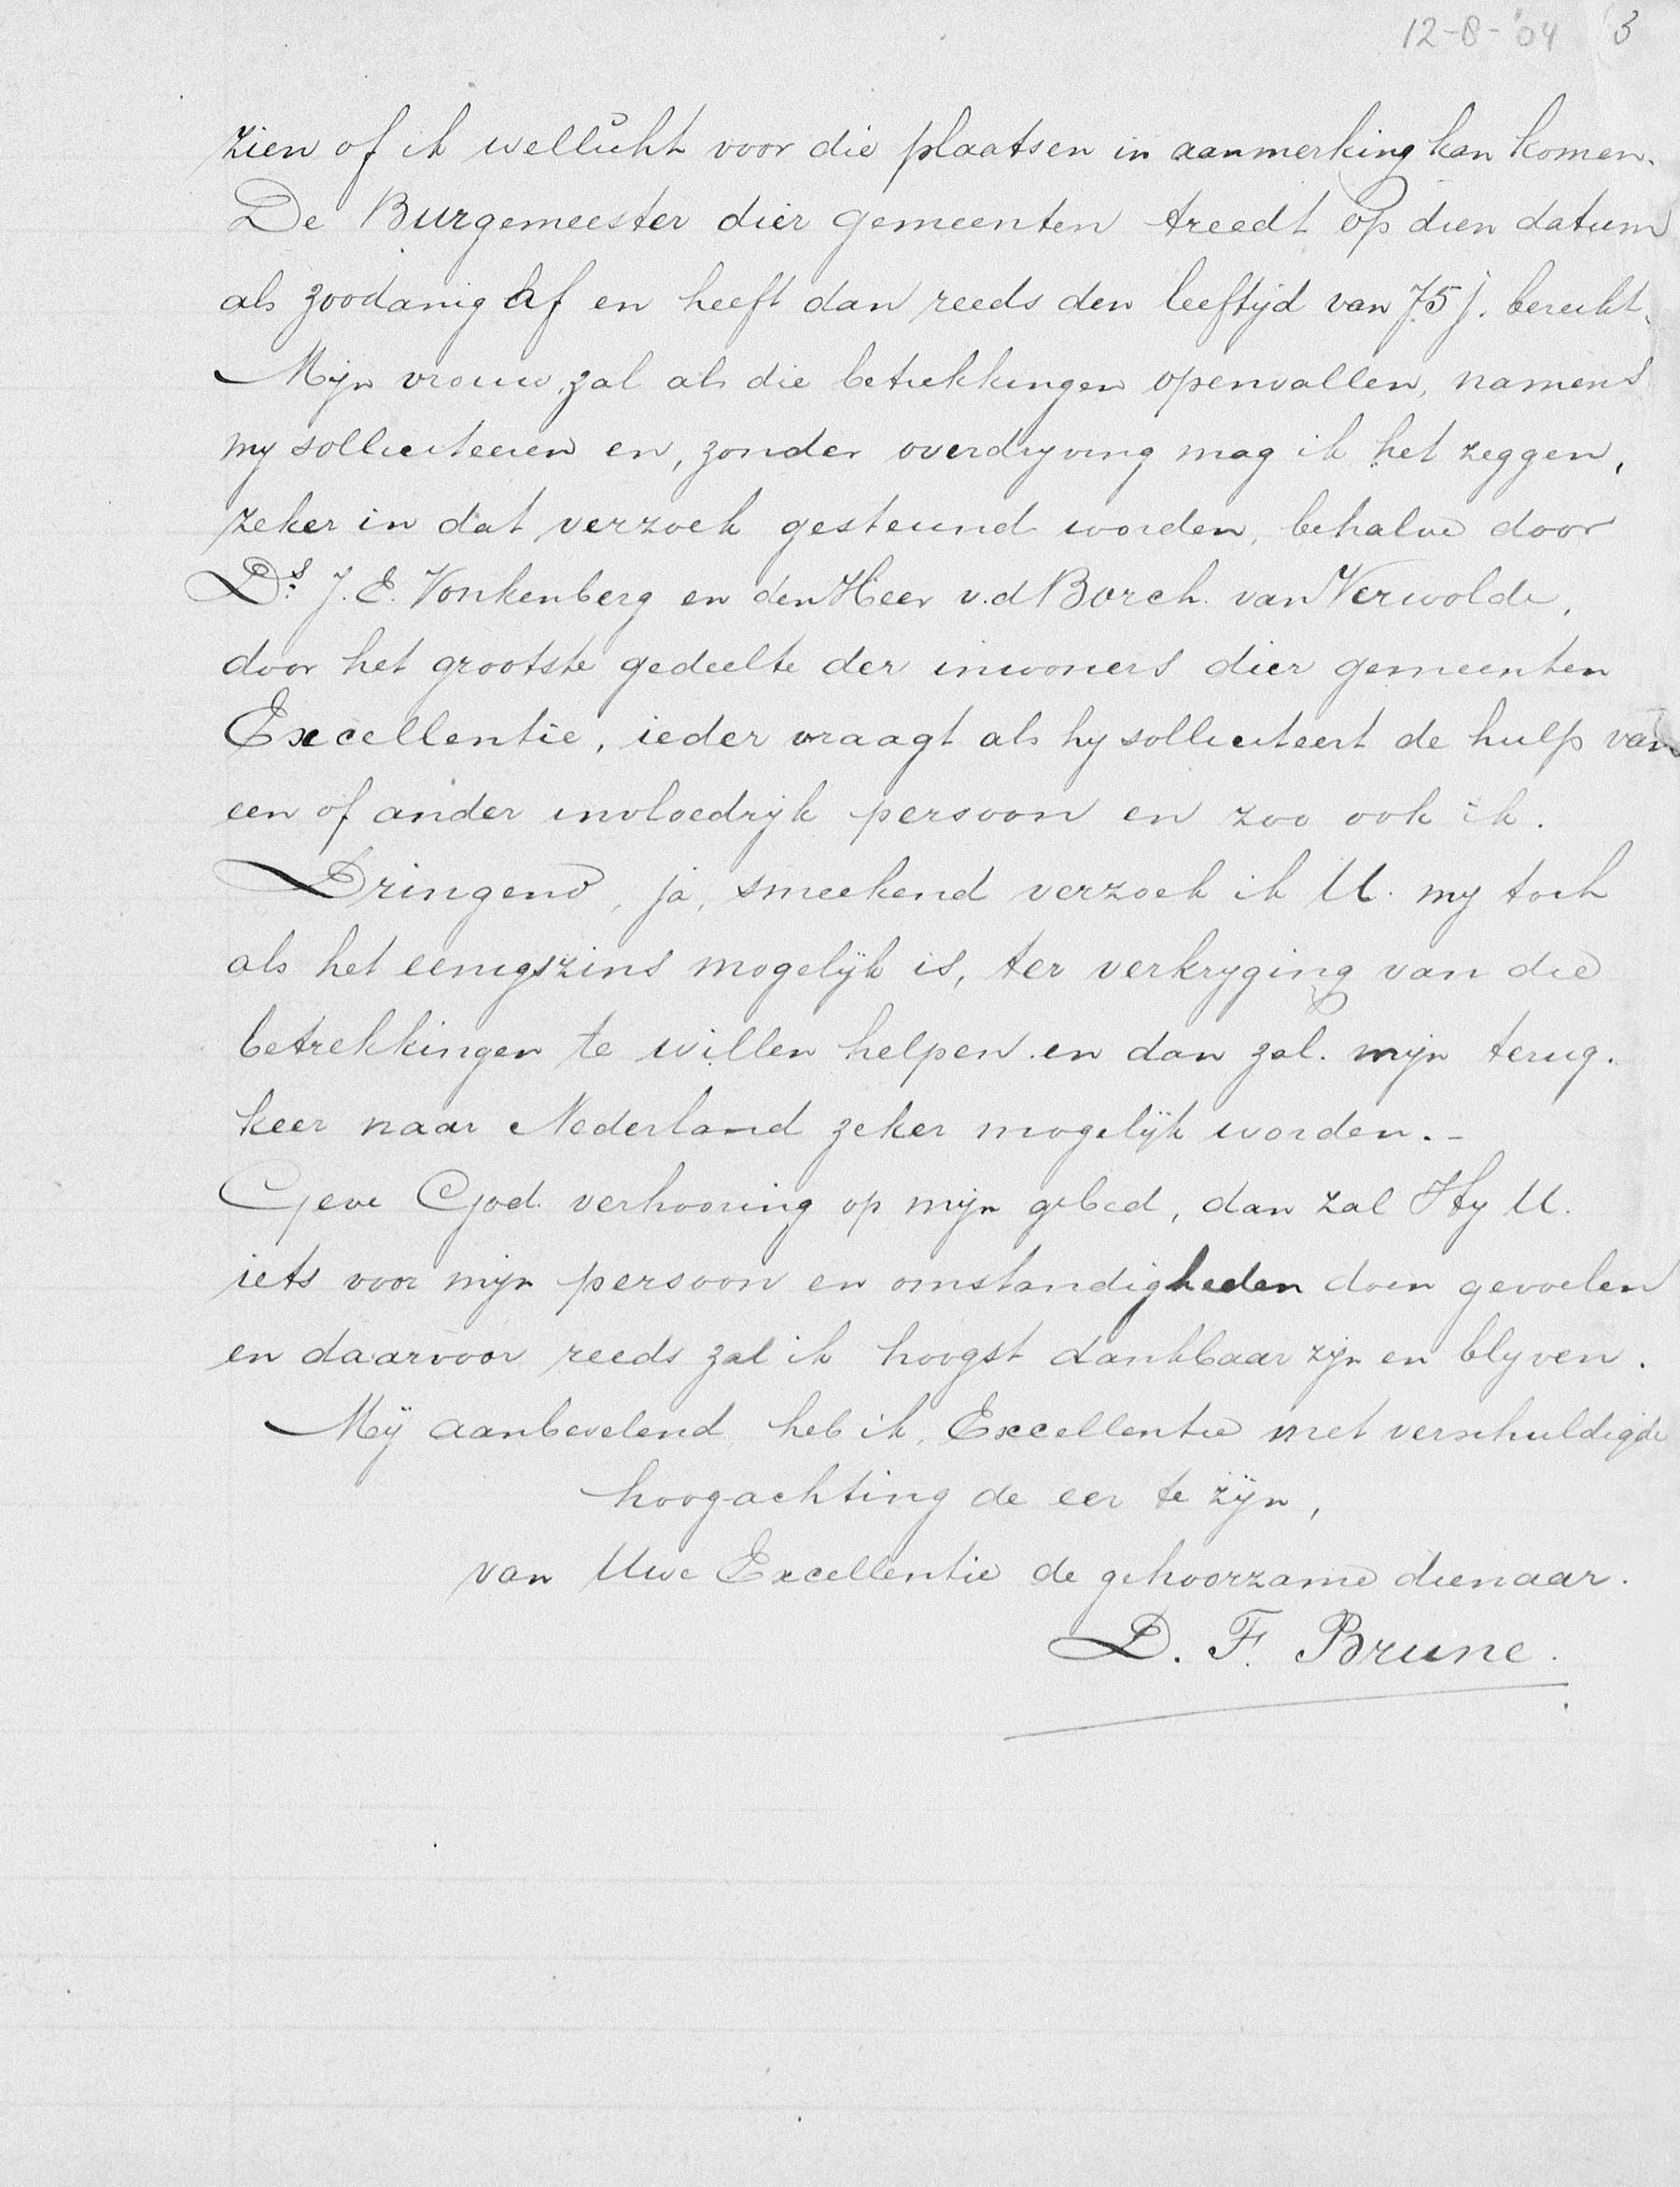 12-8-'04 3
zien of ik wellicht voor die plaatsen in aanmerking kan komen.
De Burgemeester dier gemeenten treedt op dien datum
als zoodanig af en heeft dan reeds den leeftijd van 75 j. bereikt.
Mijn vrouw, zal als die betrekkingen openvallen, namens
my solliciteeren en, zonder overdryving mag ik het zeggen,
zeker in dat verzoek gesteund worden, behalve door
Ds. J. E. Vonkenberg en den Heer v.d Borch van Verwolde,
door het grootste gedeelte der inwoners dier gemeenten
Excellentie, ieder vraagt als hy solliciteert de hulp van
een of ander invloedrijk persoon en zoo ook ik.
Dringend, ja, smeekend verzoek ik U. my toch
als het eenigszins mogelijk is, ter verkryging van die
betrekkingen te willen helpen en dan zal mijn terug-
keer naar Nederland zeker mogelijk worden.-
Geve God verhooring op mijn gebed, dan zal Hy U.
iets voor mijn persoon en omstandigheden doen gevoelen
en daarvoor reeds zal ik hoogst dankbaar zijn en blyven.
Mij aanbevelend heb ik, Excellentie met verschuldigde
hoogachting de eer te zijn,
van Uwe Excellentie de gehoorzame dienaar.
D. F. Brune.